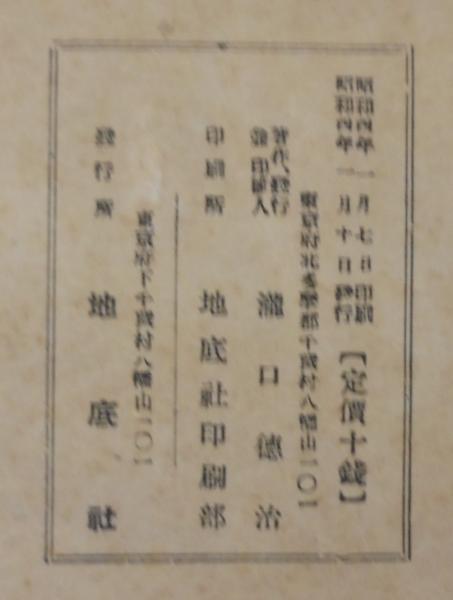 昭和四年一月七日印刷
昭和四年一月十日發行
【定價十錢】
東京府北多摩郡千歳村八幡山一〇一
著作、發行
兼印刷人
瀧口德治
印刷所
地底社印刷部
東京府下千歳村八幡山一〇一
發行所
地底社